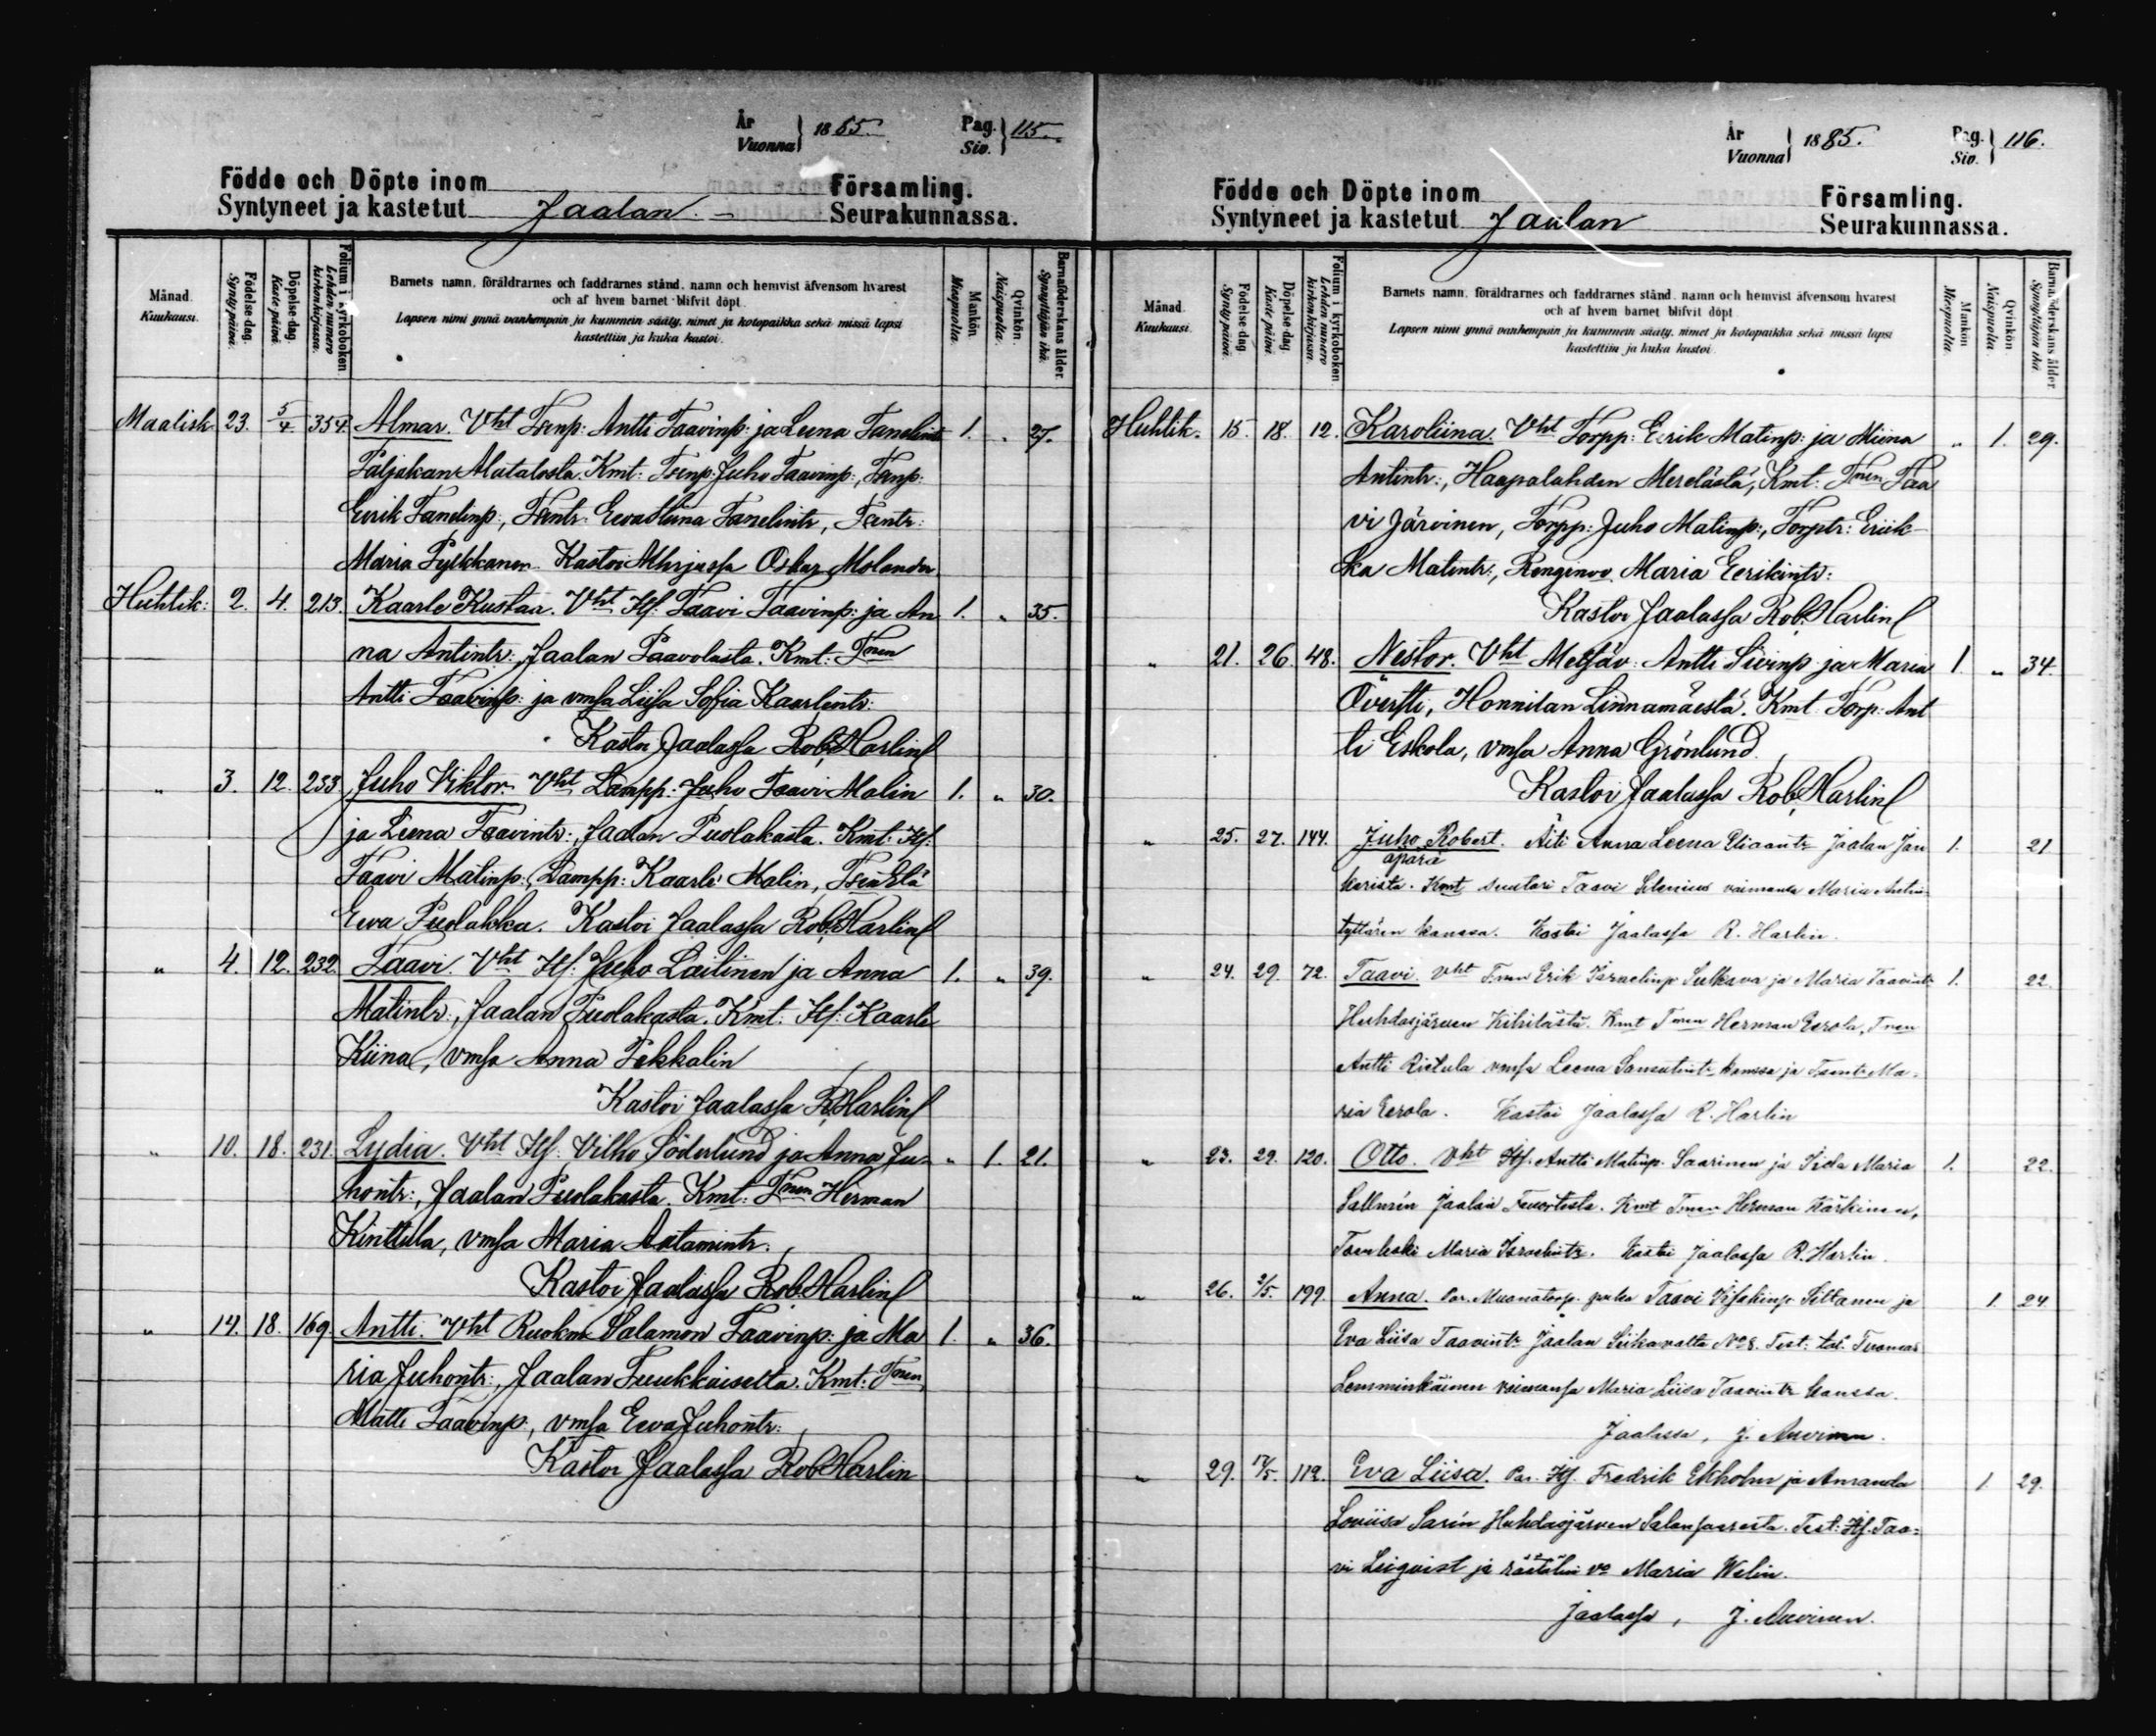 År
Vuonna } 1885. Pag.
Siv. } 115.
Födde och Döpte inom Församling.
Syntyneet ja kastetut Jaalan. Seurakunnassa.
Månad. Kuukausi.
Födelse-dag. Synty päivä.
Döpelse-dag. Kaste päivä.
Folium i kyrkoboken. Lehden numero kirkonkirjassa.
Barnets namn, föräldrarnes och faddrarnes stånd, namn och hemvist äfvensom hvarest
och af hvem barnet blifvit döpt.
Lapsen nimi ynnä vanhempain ja kummein sääty, nimet ja kotopaikka sekä missä lapsi
kastettiin ja kuka kastoi.
Mankön. Miespuolta.
Qvinkön. Naispuolta.
Barnaföderskans ålder. Synnyttäjän ikä.
Maalisk. 23. 5/4 354. Almar. Vht Antti Taavinp: ja Leena 1. „ 27.
Kmt: Juho Taavinp:,
Eerik
Maria Pylkkänen. Kastoi Oskar Molander
Huhtik: 2. 4. 213. Kaarle Kustaa. Vht Itf: Taavi Taavinp: ja An 1. „ 35.
na Antintr:, Jaalan Paavolasta. Kmt: Tmen
Antti Taavinp: ja vmsa Liisa Sofia Kaarlentr:
Kastoi Jaalassa Rob. Harlin
„ 3. 12. 233. Juho Viktor. Vht Lampp: Juho Taavi Malin 1. „ 30.
ja Leena Taavintr:, Jaalan Puolakasta. Kmt: Itf:
Taavi Matinp:, Lampp: Kaarle Malin,
Eeva Puolakka. Kastoi Jaalassa Rob. Harlin
„ 4. 12. 232. Taavi. Vht Itf: Juho Laitinen ja Anna 1. „ 39.
Matintr:, Jaalan Puolakasta. Kmt: Itf: Kaarle
Kiina, vmsa Anna Pekkalin
Kastoi Jaalassa R. Harlin
„ 10. 18. 231. Lydia. Vht Itf: Vilho Söderlund ja Anna Ju- „ 1. 21.
hontr:, Jaalan Puolakasta. Kmt: Tmen Herman
Kinttula, vmsa Maria Aatamintr.
Kastoi Jaalassa Rob. Harlin
„ 14. 18. 169. Antti. Vht Salamon Taavinp: ja Ma 1. „ 36.
ria Juhontr:, Jaalan Kmt: Tmen
Matti Taavinp:, vmsa Eeva Juhontr:
Kastoi Jaalassa Rob Harlin
År
Vuonna } 1885. Pag.
Siv. } 116.
Födde och Döpte inom Församling.
Syntyneet ja kastetut Jaalan Seurakunnassa.
Månad. Kuukausi.
Födelse-dag. Synty päivä.
Döpelse-dag. Kaste päivä.
Folium i kyrkoboken. Lehden numero kirkonkirjassa.
Barnets namn, föräldrarnes och faddrarnes stånd, namn och hemvist äfvensom hvarest
och af hvem barnet blifvit döpt.
Lapsen nimi ynnä vanhempain ja kummein sääty, nimet ja kotopaikka sekä missä lapsi
kastettiin ja kuka kastoi.
Mankön Miespuolta.
Qvinkön. Naispuolta.
Barnaföderskans ålder. Synnyttäjän ikä.
Huhtik. 15. 18. 12. Karoliina. Vht Torpp: Eerik Matinp: ja Miina „ 1. 29.
Antintr:, Haapalahden Kmt: Tmen Taa
vi Järvinen, Torpp: Juho Matinp:, Torptr: Eriik
ka Matintr:, Renginvo Maria Eerikintr:
Kastoi Jaalassa Rob. Harlin
„ 21. 26 48. Nestor. Vht Metsäv: Antti ja Maria 1. „ 34.
Översti, Honnilan Linnamäestä. Kmt Torp: Ant
ti Eskola, vmsa Anna Grönlund.
Kastoi Jaalassa Rob. Harlin
„ 25. 27. 144. Juho Robert. Äiti Anna Leena Eliaantr Jaalan Jan 1. 21
äpärä
karista. Kmt suutari Taavi Stenius vaimonsa Maria Antin
tyttären kanssa. Kastoi Jaalassa R. Harlin.
„ 24. 29. 72. Taavi. Vht Tmen Erik Israelinp Sulkava ja Maria Taavintr 1. 22.
Huhdasjärven Kmt Tmen Herman Eerola, Tmen
Antti vmsa Leena kanssa ja Ma-
ria Eerola. Kastoi Jaalassa R. Harlin
„ 23. 29. 120. Otto. Vht Itf. Antti Matinp. Saarinen ja Iida Maria 1. 22.
Sallmén Jaalan Kmt Tmen Herman Kärkinen,
Maria Kastoi Jaalassa R. Harlin.
„ 26. 2/5. 199. Anna. Par. Taavi Siltanen ja 1. 24
Eva Liisa Taavintr Jaalan Siikavalta No 8. Test: tal. Tuomas
Lemminkäinen vaimonsa Maria Liisa Taavintr kanssa.
Jaalassa, J. Auvinen.
„ 29. 17/5. 112. Eva Liisa. Par. Itf. Fredrik Ekholm ja Amanda 1. 29.
Loviisa Sarin Huhdasjärven Salansaaresta. Test: Itf. Taa-
vi Liiqvist ja räätälin vo Maria Welin.
Jaalassa, J. Auvinen.